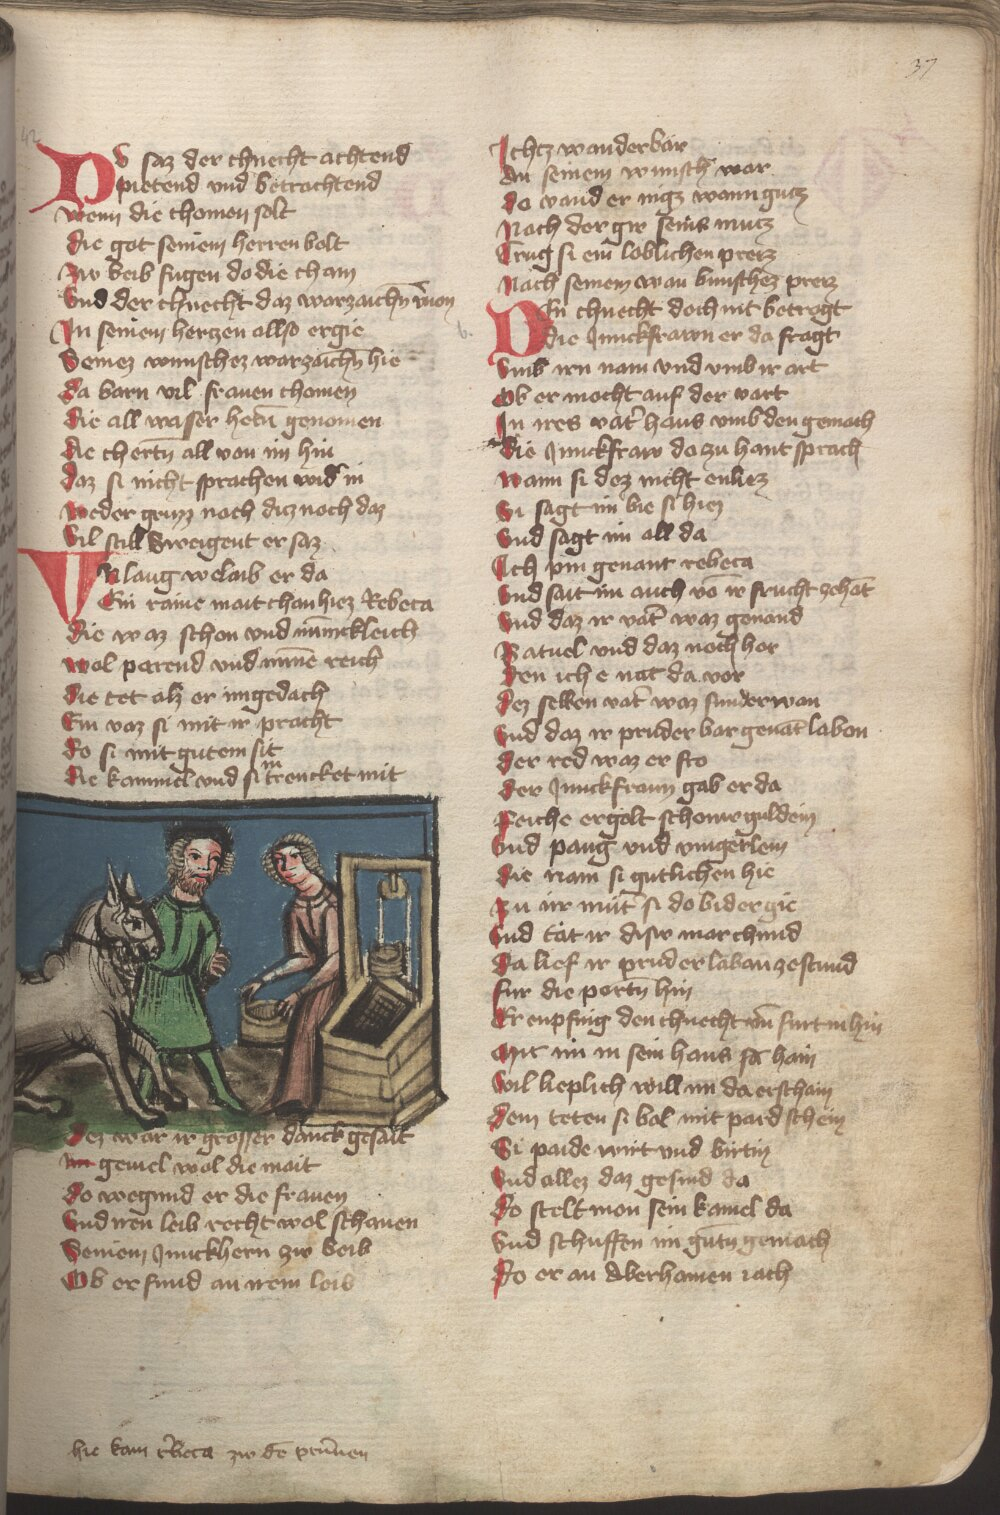 37
42
Du saz der chnecht achtend
pietend vnd betrachtend
wenn die chomen solt
die got seinem herren bolt
Zw beib fugen do die cham
Vnd der chnecht daz warzaichn
In seinem hertzen allso ergie
Seinez wunschez warzaichn hie
da barn vil frauen chomen
die all wasser hetn̄ genomen
die chertn̄ all von im hin
daz si nicht sprachen wid' in
weder gruz noch diz noch daz
Vil still sweigent er saz
Vnlang welaib er da
Ein raine mait chan hiez Rebeca
die waz schon vnd minnickleich
wol parend vnd minē reich
die tet alz er im gedach
Ein vaz si mit ir pracht
do si mit gutem sit
die kammel vnd si im trencket mit
dez war ir grosser danck gesait
geuiel wol die mait
do wegund er die frauen
Vnd iren leib recht wol schauen
Seinem Junckhern zw beib
Ob er fund an irem leib
hie kam rebeca zw dē prūnen
Ichtz wanderbar
An seinem wunsch war
do vand er nigz wann gutz
Nach der gir seins mutz
Trug si ein loblichen preiz
Nach seinem wan bunschez preiz
Den chnecht doch nit betrogt
die Junckfrawn er da fragt
Vmb irn nam vnd vmb ir art
Ob er mocht auf der vart
In ires vat' haus vmb den gemach
die Junckfraw do zu hant sprach
wann si dez nicht enliez
Si sagt im bie si hiez
Vnd sagt im all da
Ich pin genant rebeca
Vnd sait im auch vō ir frucht zehāt
Vnd daz ir vat' waz genand
Batuel vnd daz noch hor
den ich e nāt da vor
dez selben vat' waz sunder wan
Vnd daz ir pruder bar genāt labon
der red waz er fro
der Junckfraun gab er da
Reiche ergolt schoner guldein
Vnd paug vnd vingerlein
die nam si gutlichen hie
Zu irr mut' si do bider gie
Vnd tāt ir disiw mar chund
da lief ir pruder laban zestund
fur die portn̄ hin
Er enpfing den chnecht vn̄ furt in hin
Mit im in sein haus sā haim
Vil lieplich will im da erschain
dem teten si bol mit pard schein
Si paide wirt vnd birtin
Vnd allez daz gesind da
do stelt mon sein kamel da
Vnd schuffen im gutn̄ gemach
do er an Aberhamen iach